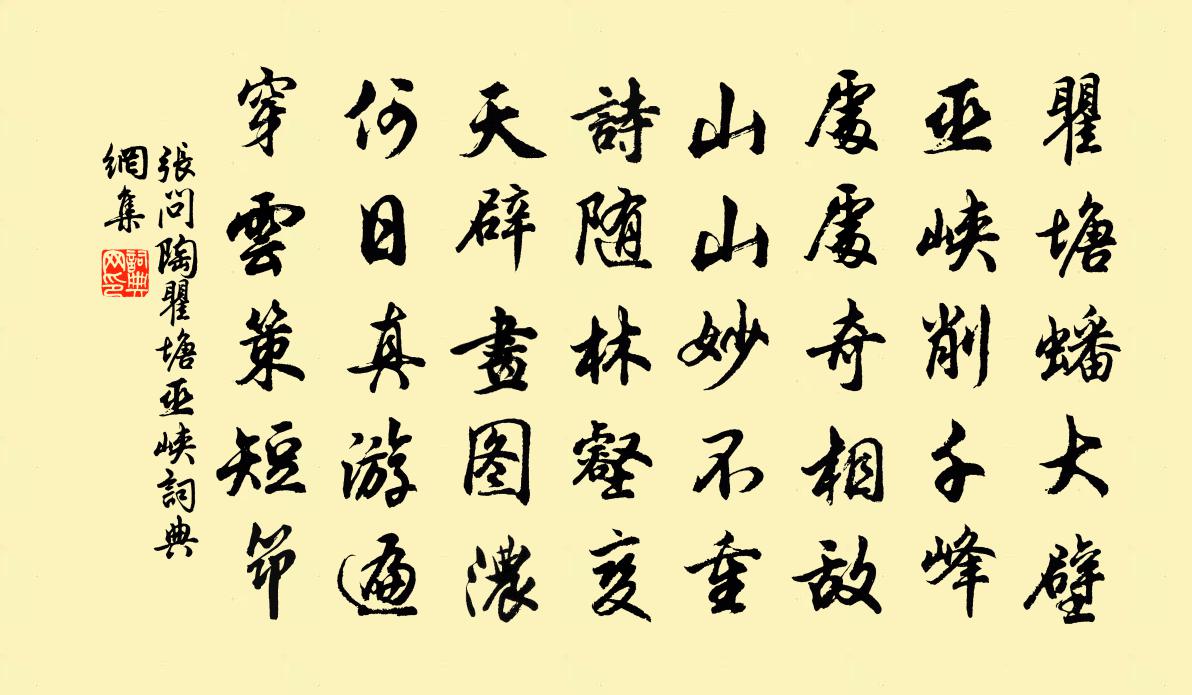 瞿塘蟠大壁
巫峽削千峰
處處奇相敌
山山妙不重
詩随林壑变
天辟畫图濃
何日真游遍
穿雲策短笻
張問陶瞿塘巫峽詞典
網集
詞典
网印